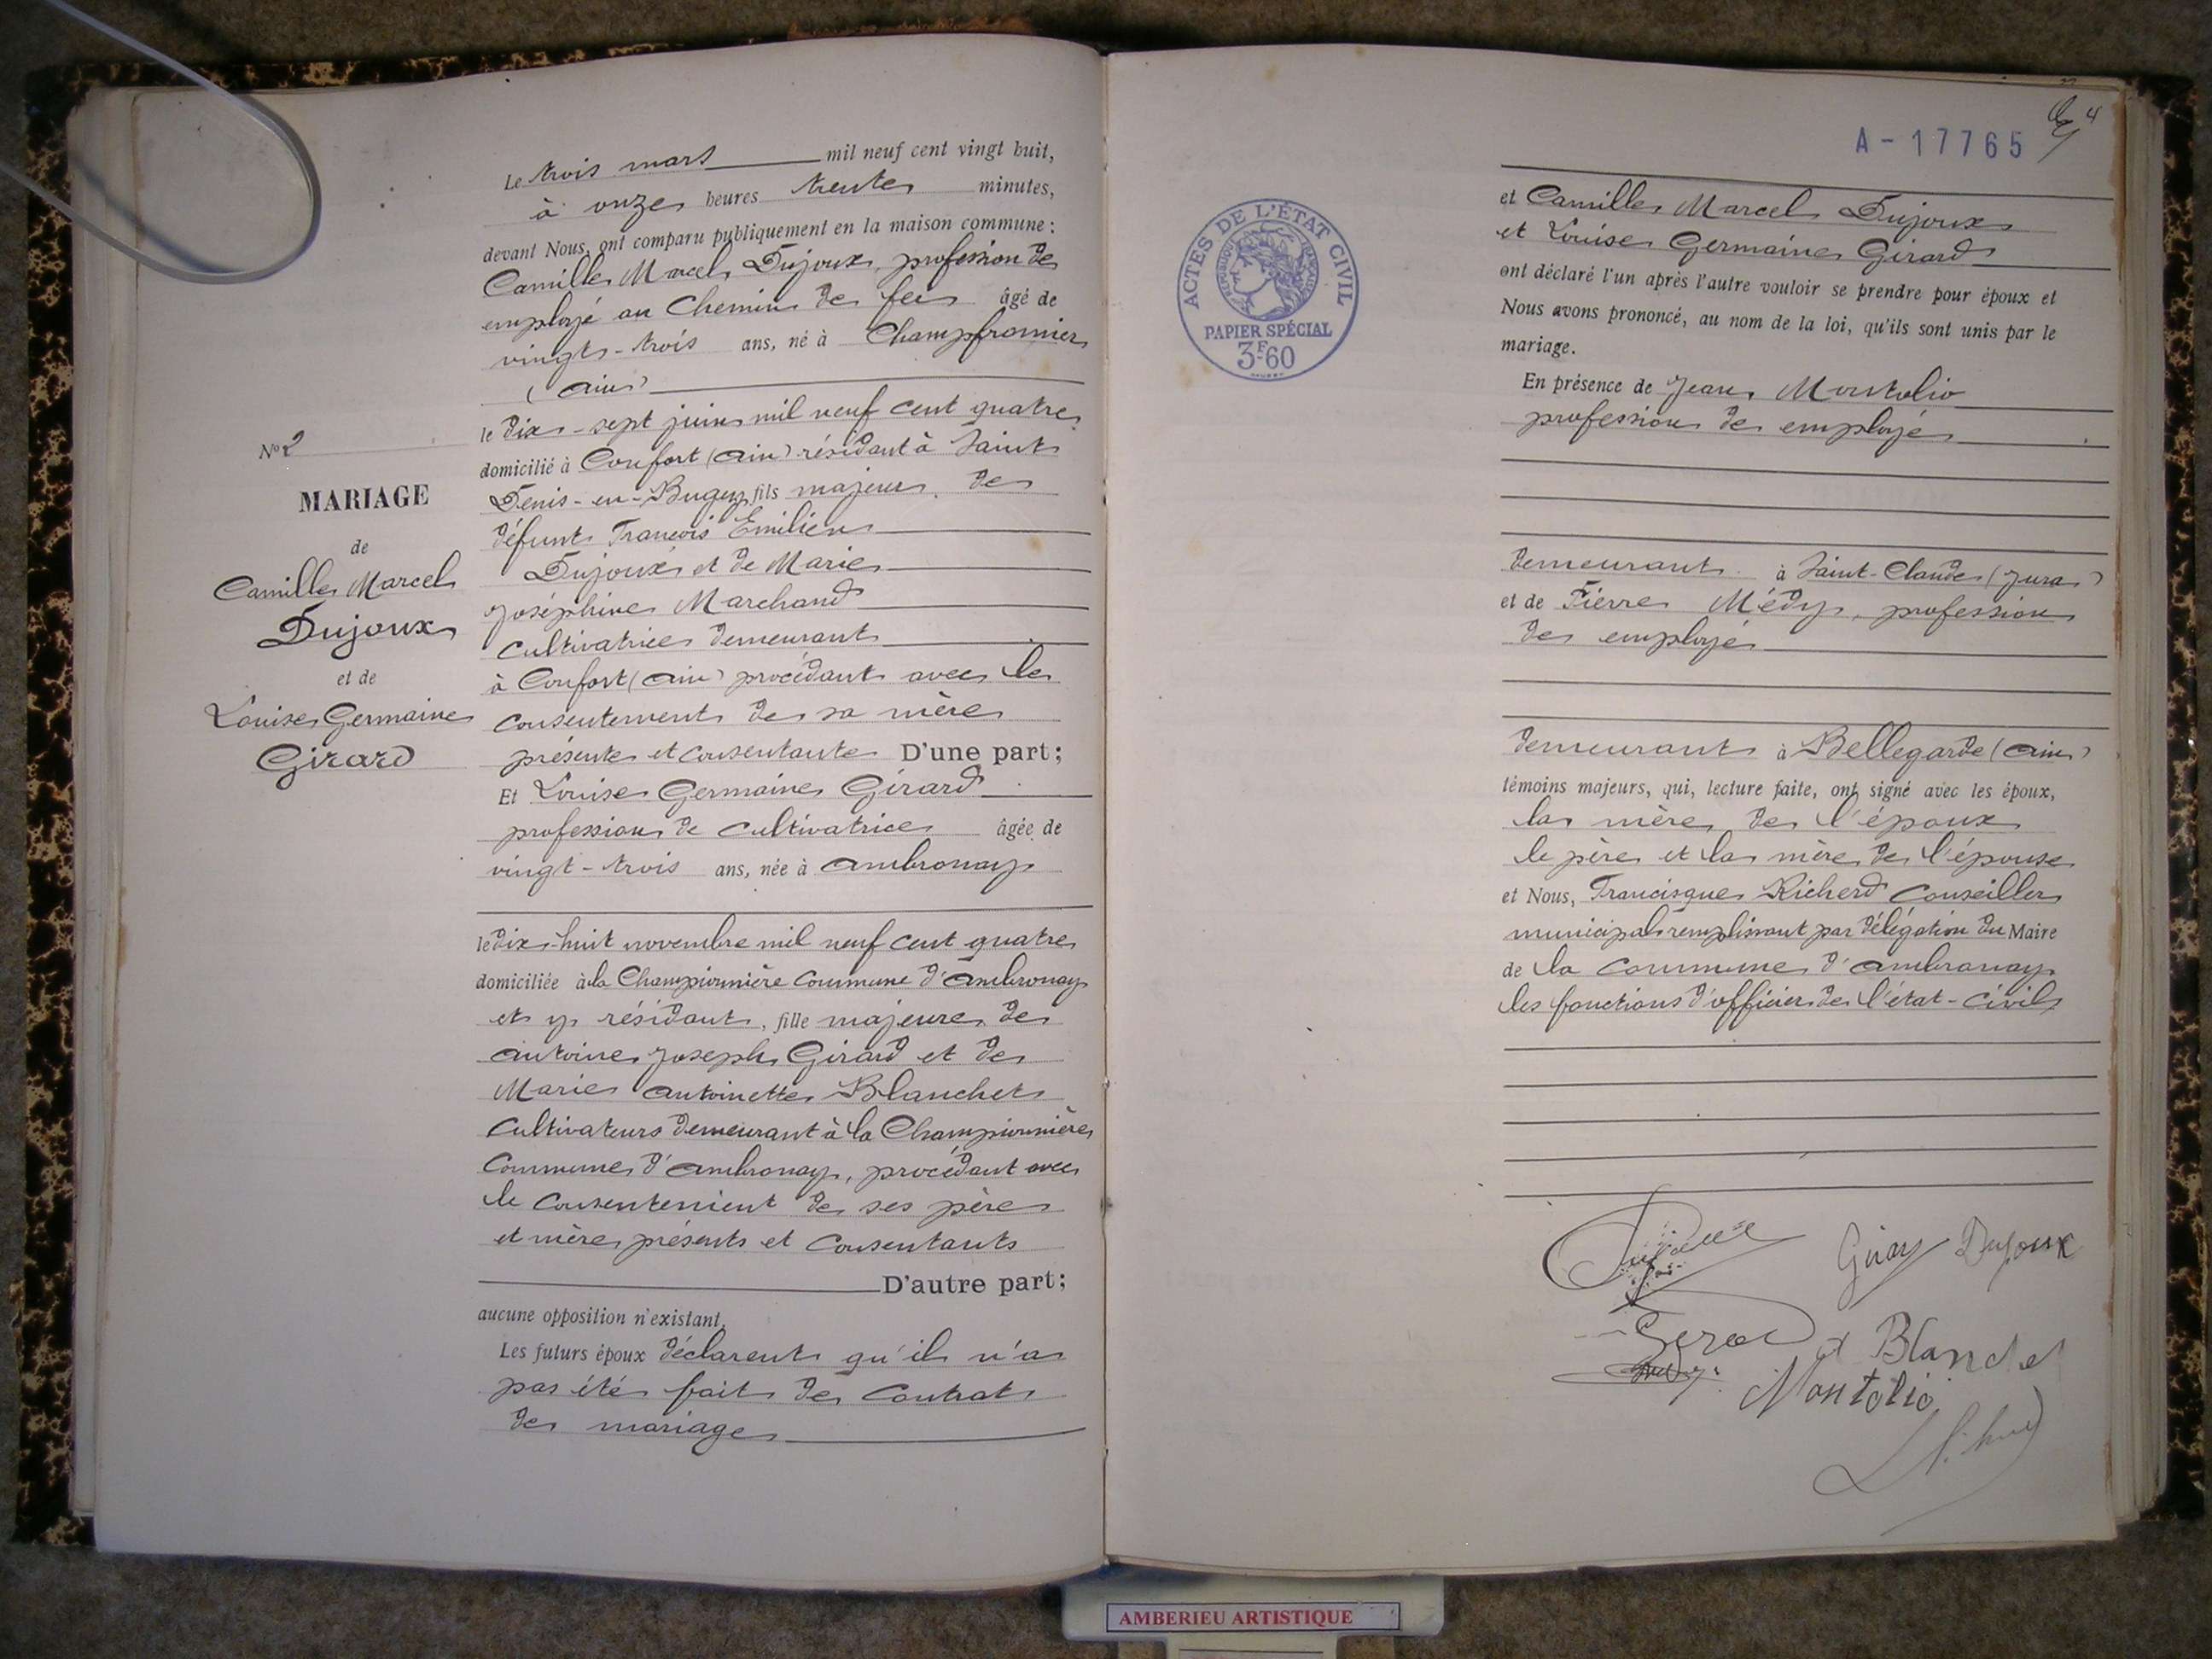 N° 2
MARIAGE
de
Camille Marcel
Dujoux
et de
Louise Germaine
Girard
Le trois mars mil neuf cent vingt huit,
à onze heures trente minutes,
devant Nous, ont comparu publiquement en la maison commune :
Camille Marcel Dujoux, profession de
employé au Chemin de fer âgé de
vingt-trois ans, né à Champfromier
(Ain)
le dix-sept juin mil neuf cent quatre
domicilié à Confort (Ain) résidant à Saint
Denis-en-Bugey fils majeur de
défunt François Emilien
Dujoux et de Marie
Joséphine Marchand
cultivatrice demeurant
à Confort (Ain) procédant avec le
consentement de sa mère
présente et consentante D'une part;
Et Louise Germaine Girard
profession de cultivatrice âgée de
vingt-trois ans, née à Ambronay
le dix-huit novembre mil neuf cent quatre
domiciliée à la Championnière commune d'Ambronay
et y résidant, fille majeure de
Antoine Joseph Girard et de
Marie Antoinette Blanchet
cultivateurs demeurant à la Championnière
Commune d'Ambronay, procédant avec
le consentement de ses père
et mère présents et consentants
D'autre part;
aucune opposition n'existant.
Les futurs époux déclarent qu'il n'a
pas été fait de contrat
de mariage
4
A-17765
ACTES DE L'ÉTAT CIVIL
RÉPUBLIQUE FRANÇAISE
PAPIER SPÉCIAL
3F60
et Camille Marcel Dujoux
et Louise Germaine Girard
ont déclaré l'un après l'autre vouloir se prendre pour époux et
Nous avons prononcé, au nom de la loi, qu'ils sont unis par le
mariage.
En présence de Jean Montolio
profession de employé
demeurant à Saint-Claude (Jura)
et de Pierre Médy, profession
de employé
demeurant à Bellegarde (Ain)
témoins majeurs, qui, lecture faite, ont signé avec les époux,
la mère de l'époux
le père et la mère de l'épouse
et Nous, Francisque Richerd Conseiller
municipal remplissant par délégation du Maire
de la commune d'Ambronay
les fonctions d'officier de l'état-civil
Dujoux
Blanchet
Montolio
AMBERIEU ARTISTIQUE